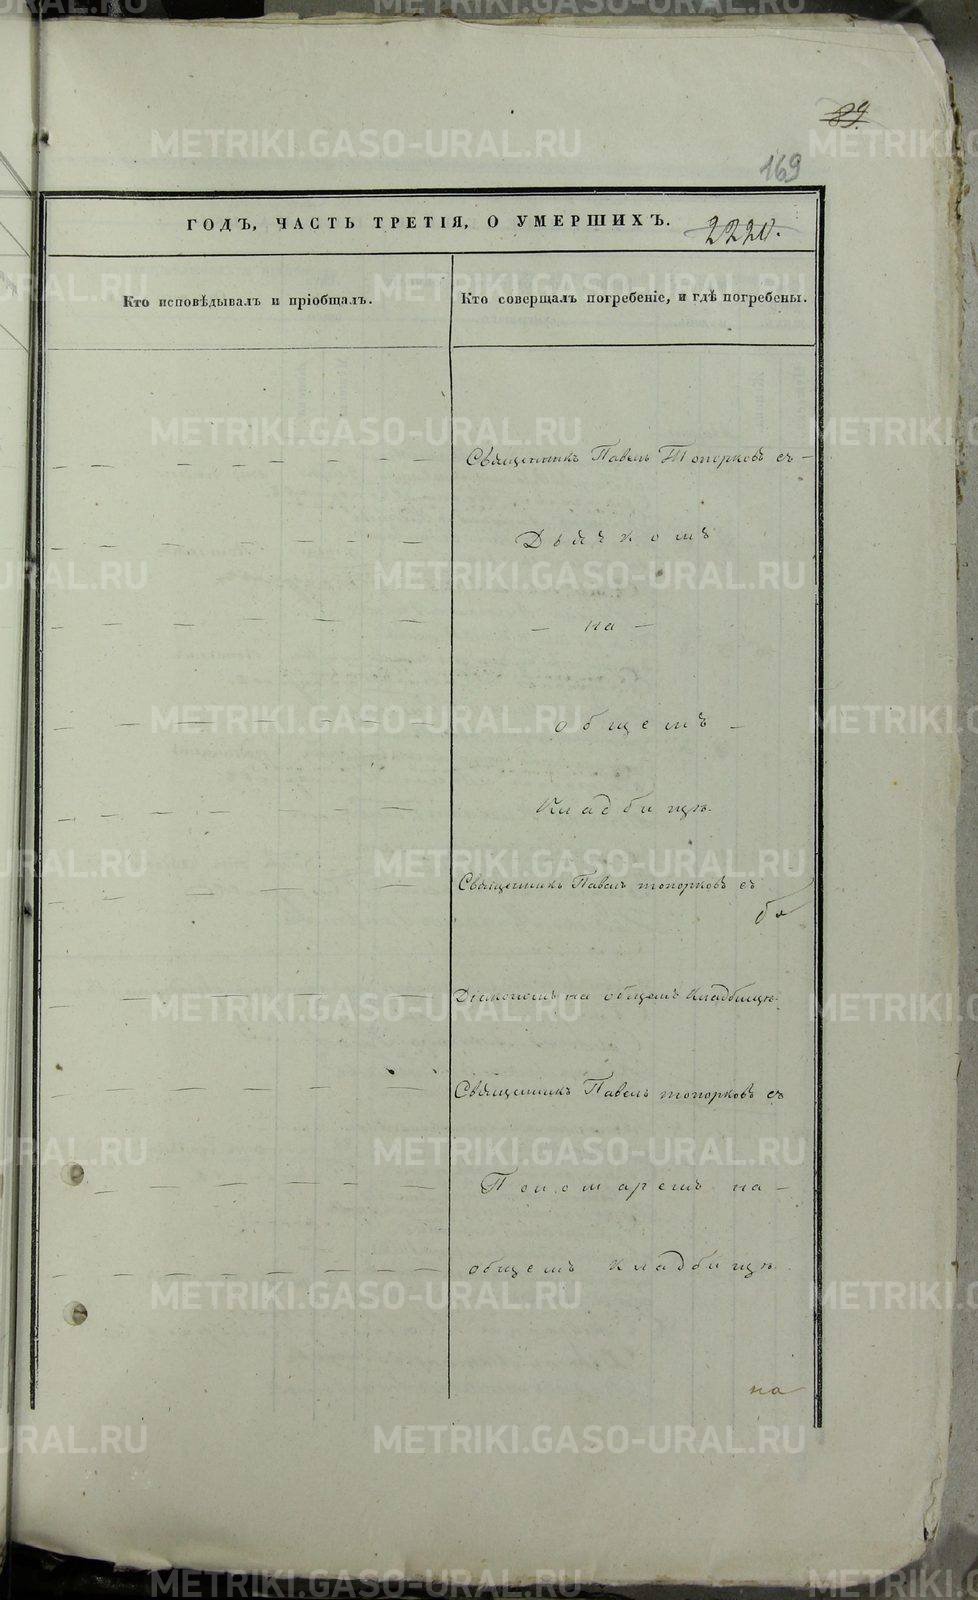 METRIKI.GASO-URAL.RU
89.
169
ГОДЪ, ЧАСТЬ ТРЕТІЯ, О УМЕРШИХЪ. 2220.
Кто исповѣдывалъ и пріобщалъ.
Кто совершалъ погребеніе, и гдѣ погребены.
Священникъ Павелъ Топорковъ съ –
Дьячкомъ
– на –
общемъ –
Кладбищѣ.
Священникъ Павелъ топорковъ съ
Діякономъ на общемъ Кладбищѣ.
Священникъ Павелъ топорковъ съ
Пономаремъ на –
общемъ Кладбищѣ.
на